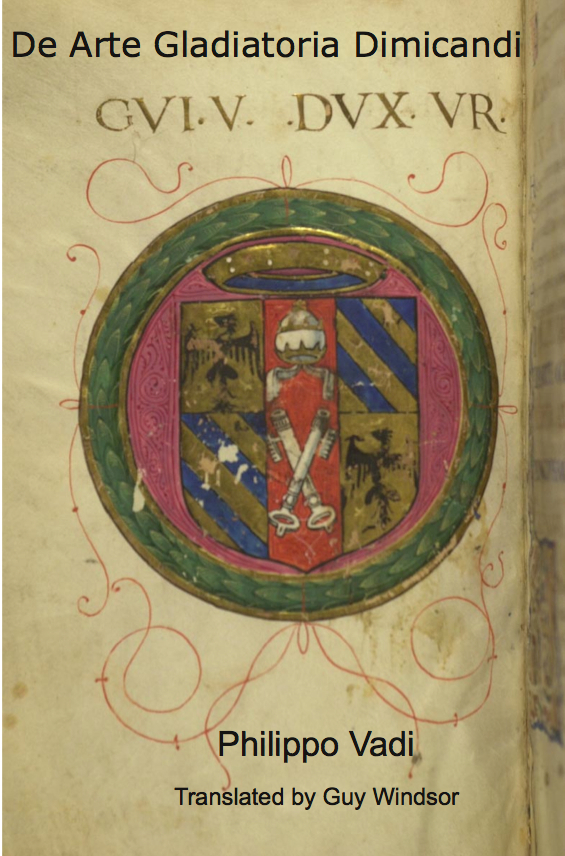 De Arte Gladiatoria Dimicandi
GVI·V· ·DVX·VR·
Philippo Vadi
Translated by Guy Windsor